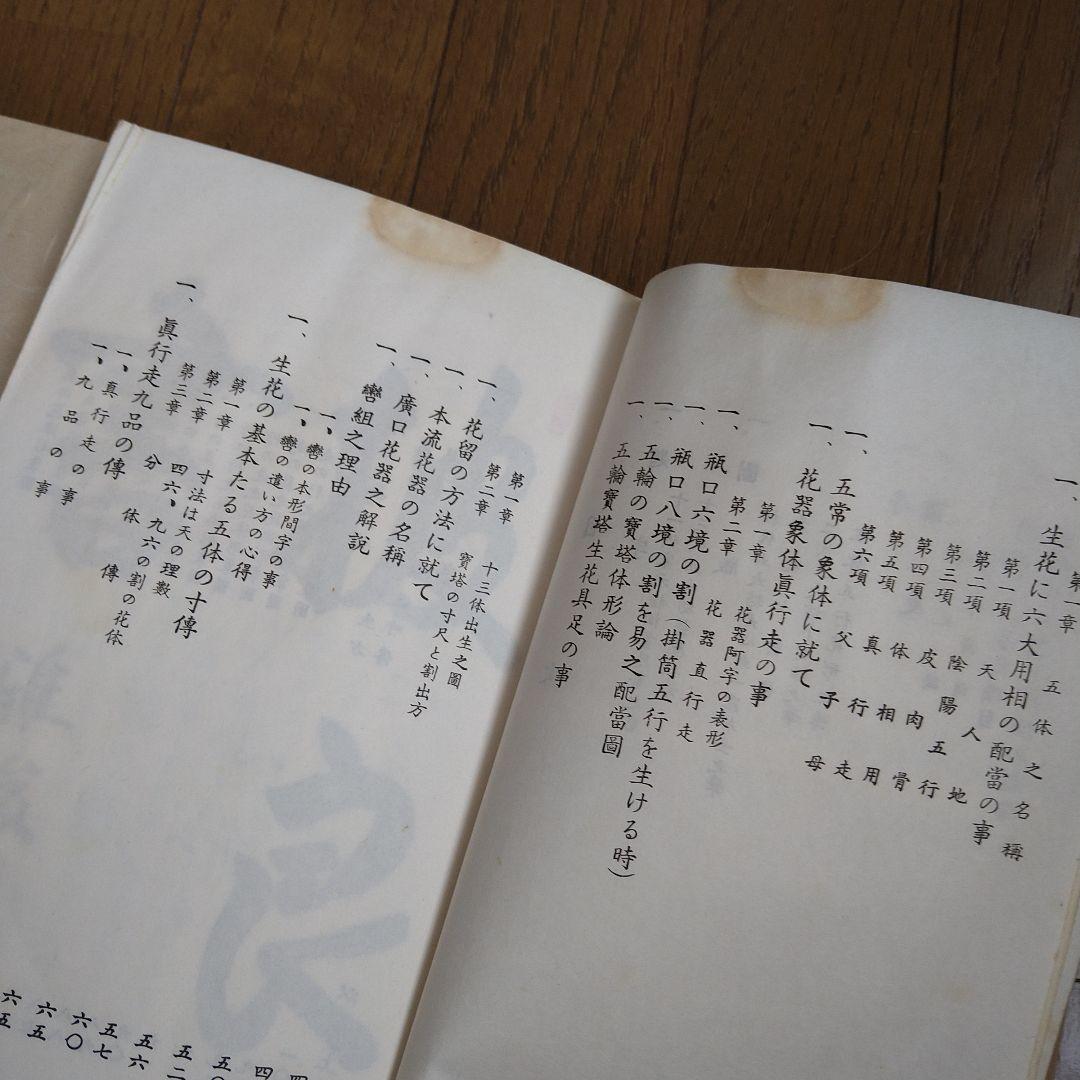 第一章 五体之名稱
一、生花に六大用相の配當の事
第一項 天人地
第二項 陰陽五行
第三項 皮肉骨
第四項 体相用
第五項 真行走
第六項 父子母
一、五常の象体に就て
一、花器象体眞行走の事
第一章 花器阿字の表形
第二章 花器直行走
一、瓶口六境の割(掛筒五行を生ける時)
一、瓶口八境の割を易之配當圖
一、五輪の寶塔体形論
一、五輪寶塔生花具足の事
第一章 十三体出生之圖
第二章 寶塔の寸尺と割出方
一、花留の方法に就て
一、本流花器の名稱
一、廣口花器之解説
一、轡組之理由
一、轡の本形間字の事
一、轡の遣い方の心得
一、生花の基本たる五体の寸傳
第一章 寸法は天の理數
第二章 四六、九六の割の花体
第三章 分体傳
一、眞行走九品の傳
一、真行走の事
一、九品の事
四
四
五〇
五二
五六
五七
六〇
六五
六五